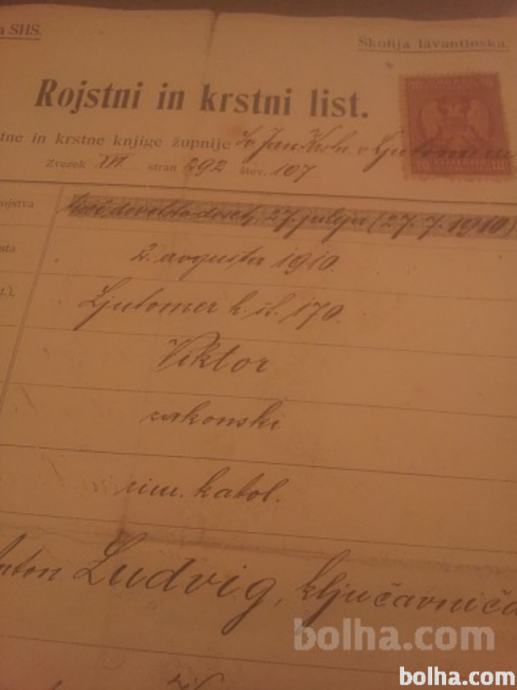 SHS.
Škofija lavantinska.
Rojstni in krstni list.
tne in krstne knjige župnije Sv. Jan. Krst. v Ljutomeru
Zvezek VII stran 292 štev. 107
rojstva
27. julija (27. 7. 1910)
2. avgusta 1910.
Ljutomer h. št. 170.
Viktor
zakonski
rim. katol.
Anton Ludvig, ključavniča
bolha.com
bolha.com